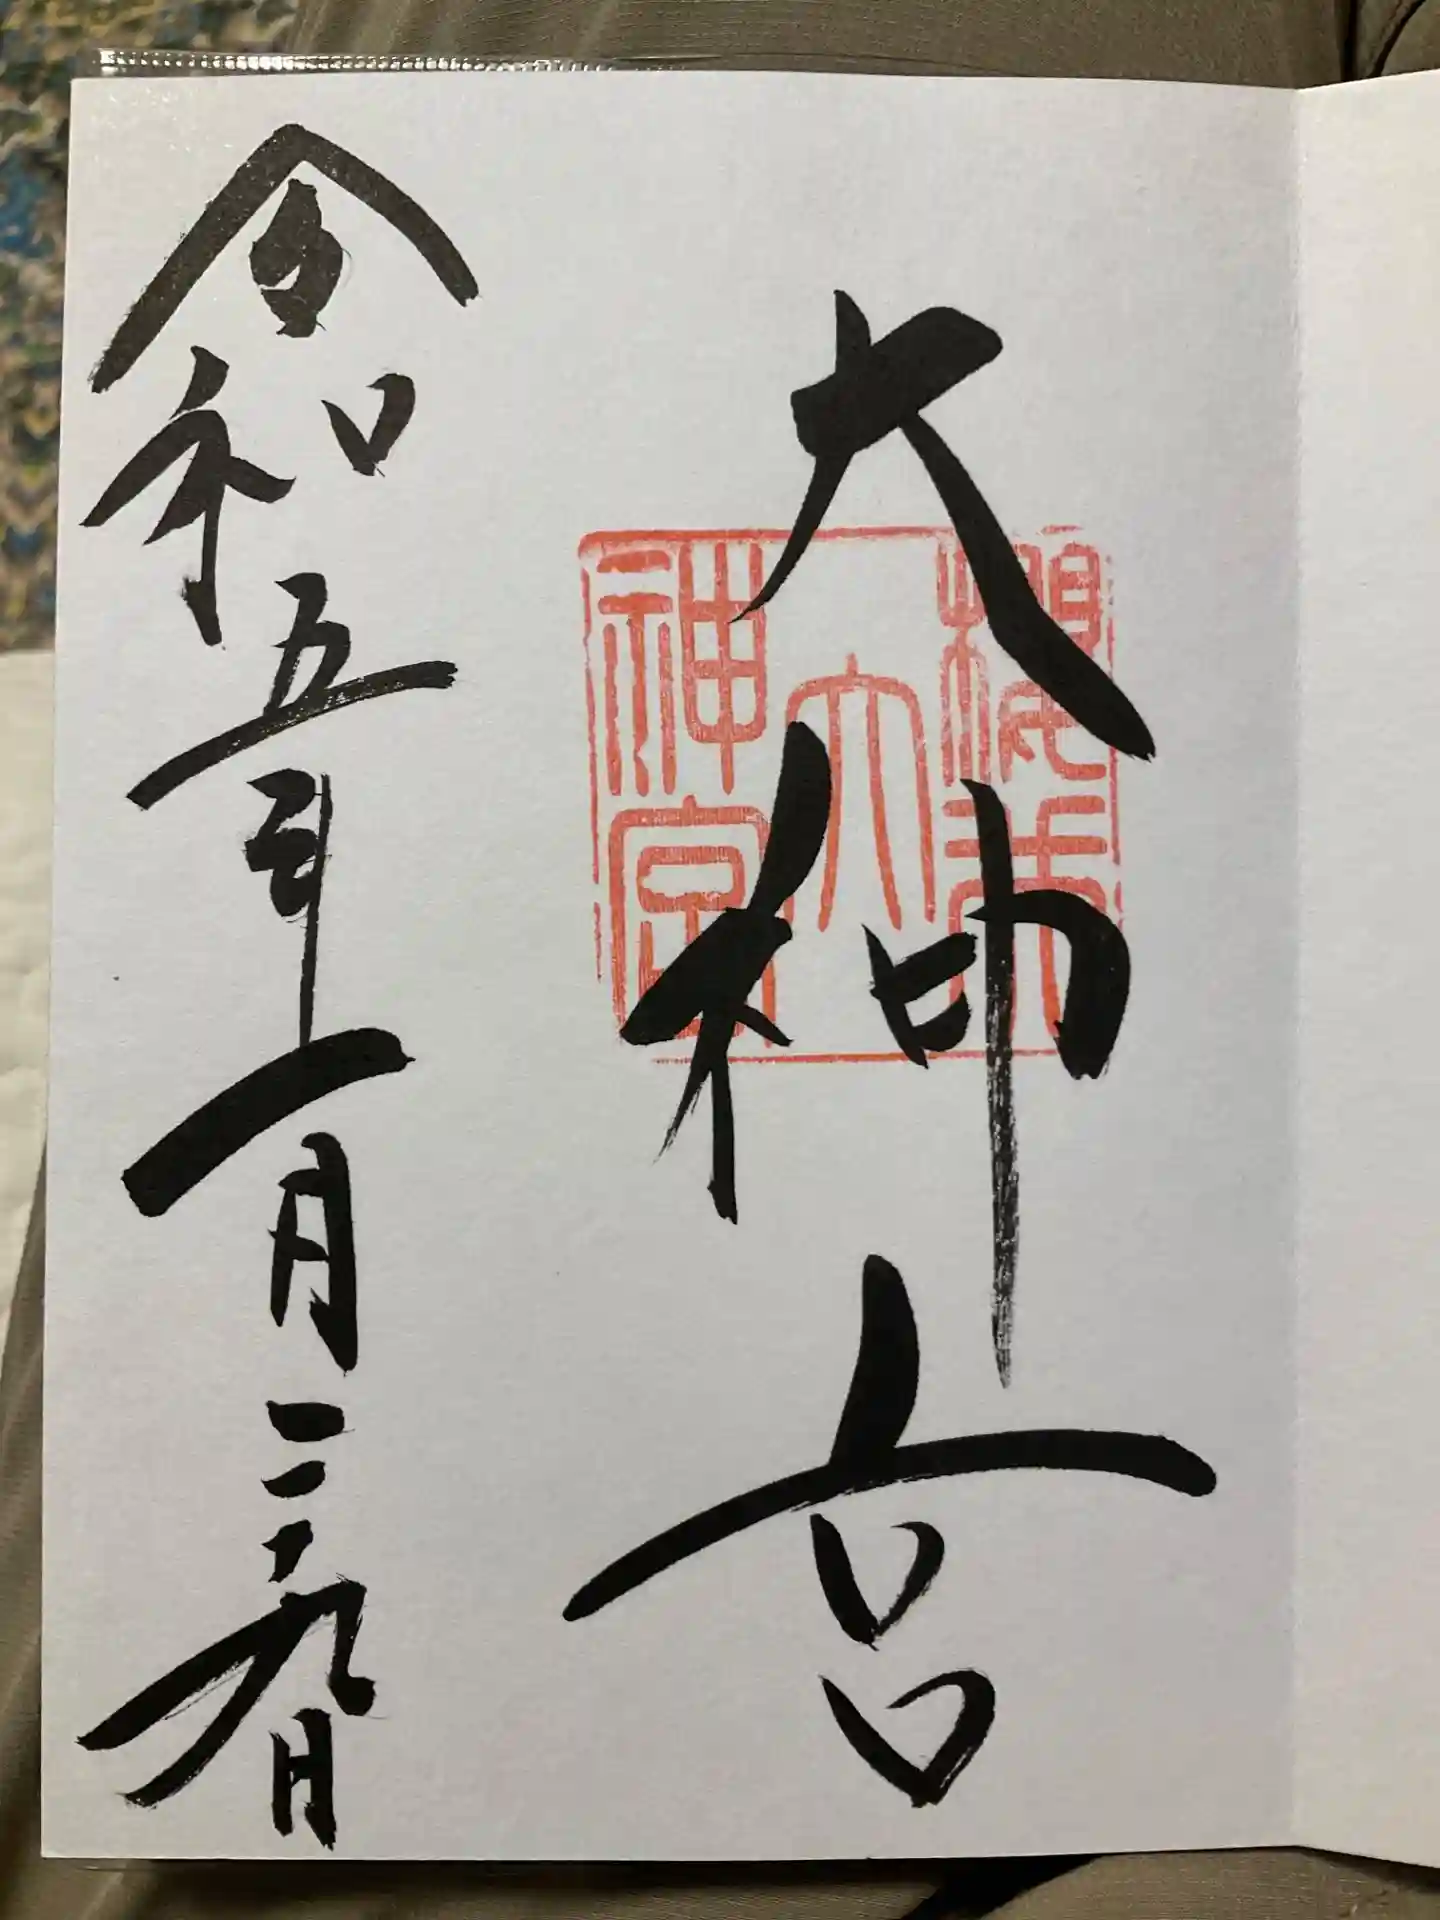 大神宮
大
神宮
令和五年一月二十九日